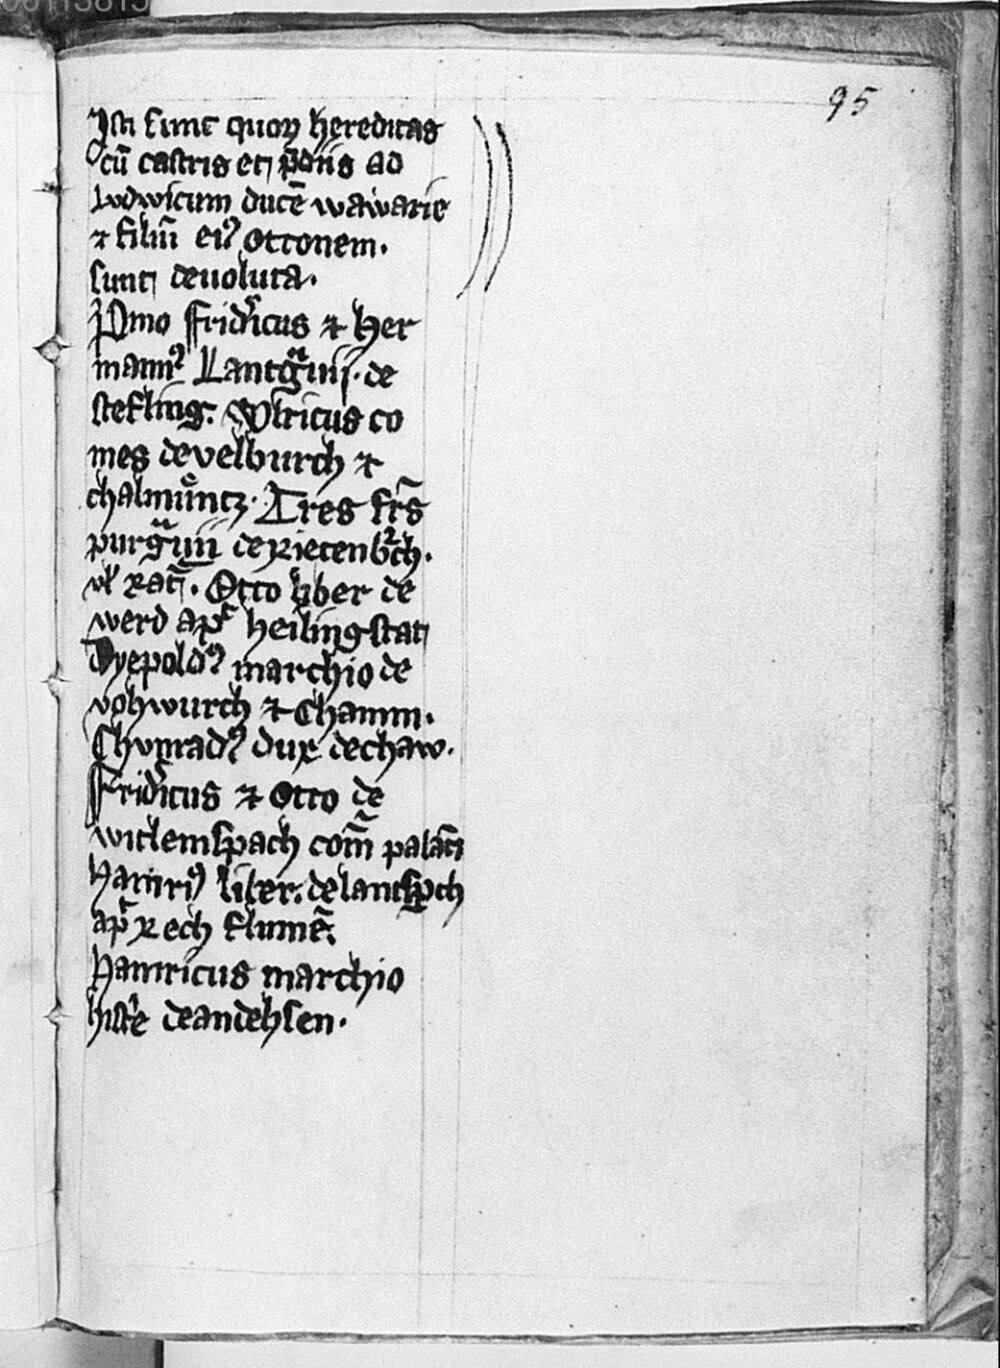 95
Isti sunt quoꝝ hereditas
cū castris et p̄diis ad
Ludwicum ducē wawarie
⁊ filiū eiꝰ Ottonem.
sunt deuoluta.
Pͥmo Fridͥicus ⁊ Her
mannꝰ Lantgͣuij. de
stefling. Vlricus co
mes de velburch ⁊
chalmuͦntz. Tres frēs
purgͣuii de Rietenbͬch.
Otto liber de
werd apᵈ heilingstat
Dyepoldꝰ marchio de
vohwurch ⁊ Chamm.
Chvnradꝰ dux dechaw.
Fridͥicus ⁊ Otto de
witlemspach com̄ palat̄i
Hainriꝰ liber. de lantspch
apᵈ Rech flumē.
Hainricus marchio
histͥe de andehsen.